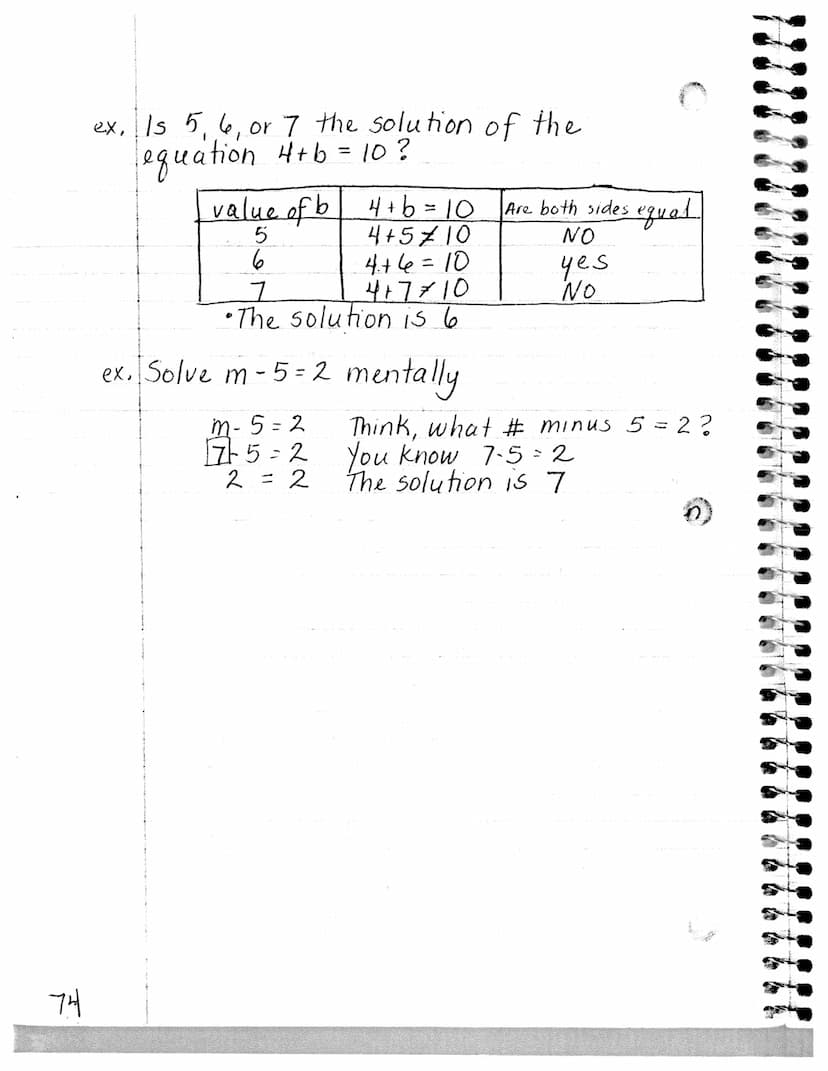 ex. Is 5, 6, or 7 the solution of the
equation 4+b = 10?
value of b 4+b = 10 Are both sides equal
5 4+5≠10 NO
6 4+6=10 yes
7 4+7≠10 NO
•The solution is 6
ex. Solve m-5=2 mentally
m-5=2 Think, what # minus 5=2?
7-5=2 You know 7-5=2
2 = 2 The solution is 7
74